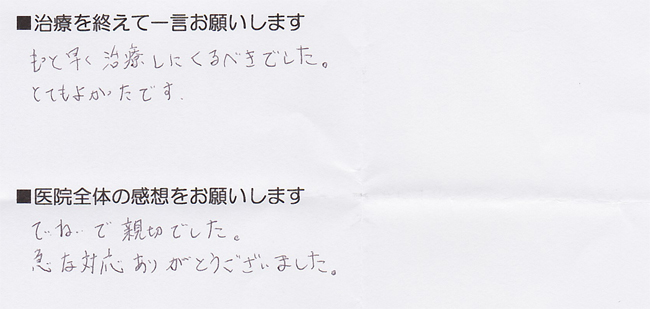 ■治療を終えて一言お願いします
もっと早く治療しにくるべきでした。
とてもよかったです.
■医院全体の感想をお願いします
ていねいで親切でした。
急な対応ありがとうございました。